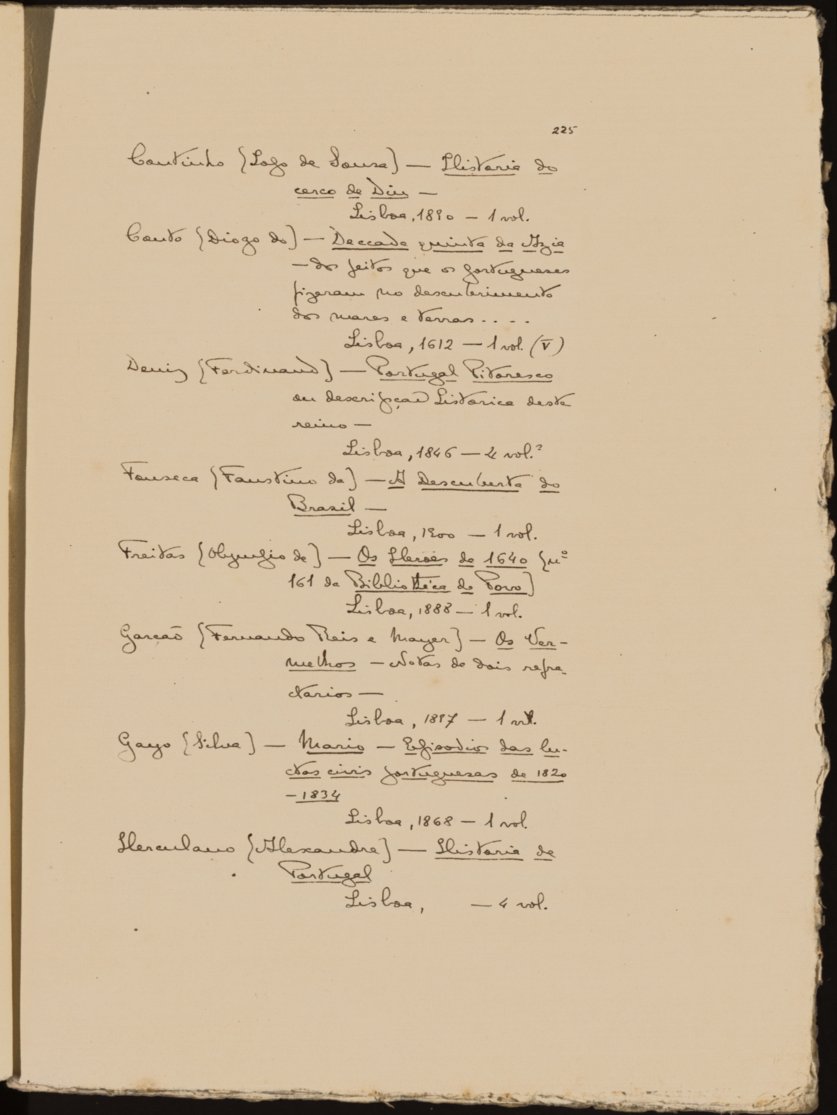 225
Coutinho (Lopo de Souza) — Historia do
cerco de Diu —
Lisboa, 1890 — 1 vol.
Couto (Diogo do) — Deccada quinta da Azia
— dos feitos que os portuguezes
fizeram no descubrimento
dos mares e terras....
Lisboa, 1612 — 1 vol. (V)
Deniz (Ferdinand) — Portugal Pitoresco
ou descripção historica deste
reino —
Lisboa, 1846 — 4 vol.
Fonseca (Faustino da) — A Descuberta do
Brazil —
Lisboa, 1900 — 1 vol.
Freitas (Olympio de) — Os Heroes de 1640 (nº
161 da Bibliotheca do Povo)
Lisboa, 1888 — 1 vol.
Garção (Fernando Reis e Mayer) — Os Ver-
melhos — Notas de dois refra-
ctarios —
Lisboa, 1897 — 1 vol.
Gayo (Silva) — Mario — Episodios das lu-
ctas civis portuguesas de 1820
-1834
Lisboa, 1868 — 1 vol.
Herculano (Alexandre) — Historia de
Portugal
Lisboa, — 4 vol.